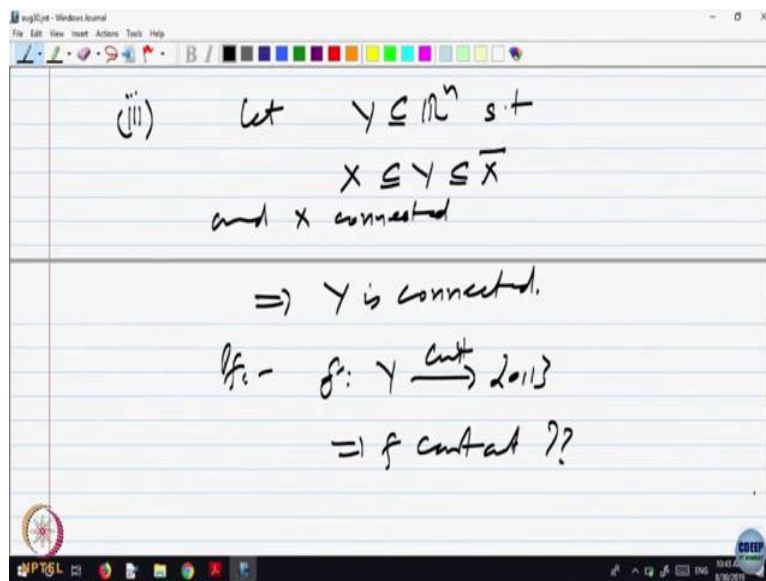 aug30.jnt - Windows Journal
File Edit View Insert Actions Tools Help
B I
(iii) Let Y ⊆ ℝⁿ s.t
X ⊆ Y ⊆ X̅
and X connected
=> Y is connected.
Pf.- f: Y cont→ {0,1}
=> f constant ??
NPTEL
CDEEP
ENG
8/30/2019